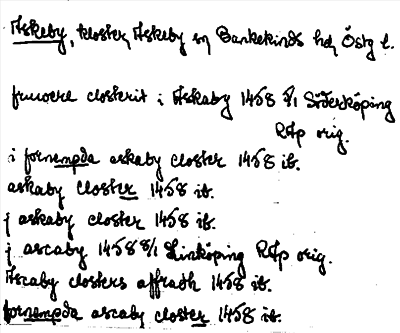 Askeby, kloster, Askeby sn Bankekinds hd, Östg l.
closterit i Askaby 1458 8/1 Söderköping
RAp orig.
i fornempda askaby closter 1458 ib.
askaby closter 1458 ib.
j askaby closter 1458 ib.
j ascaby 1458 8/1 Linköping RAp orig.
Ascaby closters affradh 1458 ib.
fornempda ascaby closter 1458 ib.